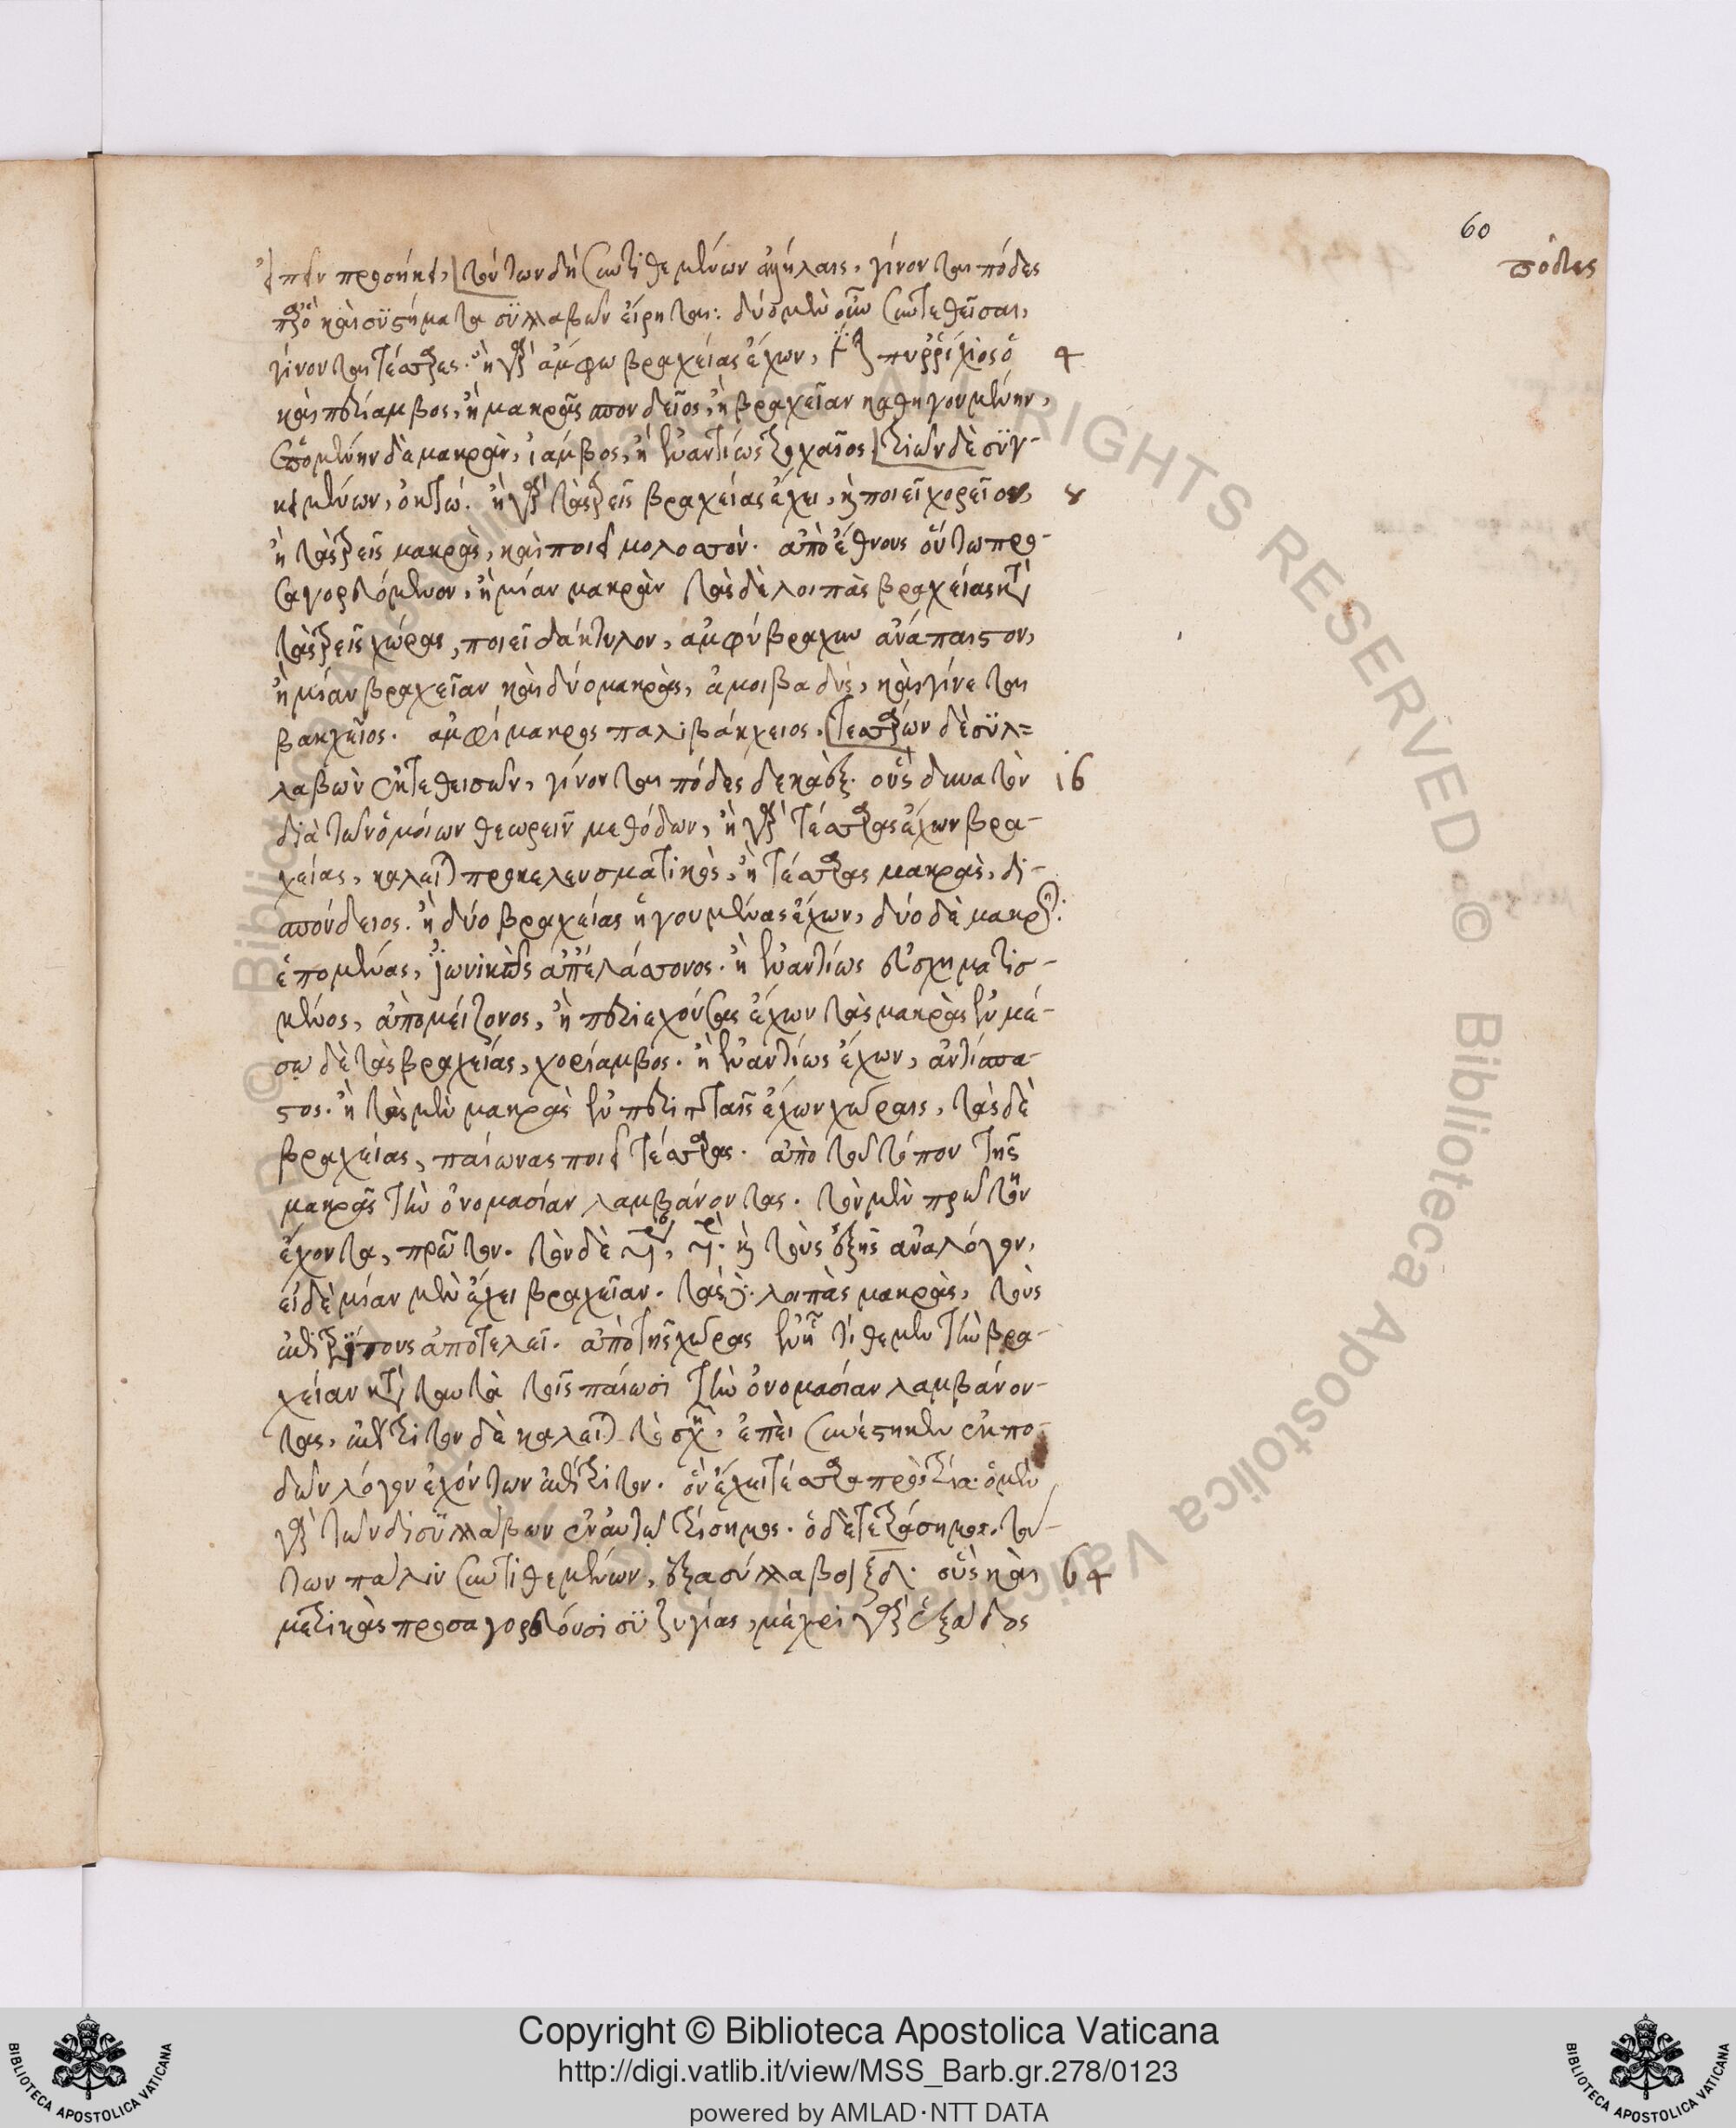 60
πόδες
εἰπεῖν προσήκει, τούτων δὴ συντιθεμένων ἀλλήλαις, γίνονται πόδες
καὶ συστήματα συλλαβῶν εἴρηται: δύο μὲν οὖν συντεθεῖσαι,
γίνονται τέσσαρες. ἢ γὰρ ἄμφω βραχείας ἔχων, πυρρίχιος ὁ 4
καὶ περίαμβος, ἢ μακρᾶς σπονδεῖος, ἢ βραχεῖαν καθηγουμένην,
ἑπομένην δὲ μακρὰν, ἰάμβος, ἢ ἐναντίως τροχαῖος τριῶν δὲ συγ-
κειμένων, ὀκτώ. ἢ γὰρ τὰς τρεῖς βραχείας ἔχει, ἢ ποιεῖ χορεῖον, 8
ἢ τὰς τρεῖς μακρὰς, καὶ ποιεῖ μολοσσόν. ἀπὸ ἔθνους οὕτω προ-
σαγορευόμενον, ἢ μίαν μακρὰν τὰς δὲ λοιπὰς βραχείας κατὰ
τὰς τρεῖς χώρας, ποιεῖ δάκτυλον, ἀμφύβραχυν ἀνάπαιστον,
ἢ μίαν βραχεῖαν καὶ δύο μακρὰς, ἀμοιβαδὶς, καὶ γίνεται
βακχεῖος. ἀμφίμακρος παλιβάκχειος. τεσσάρων δὲ συλ=
λαβῶν συντεθεισῶν, γίνονται πόδες δεκάεξ. οὓς δυνατὸν 16
διὰ τῶν ὁμοίων θεωρεῖν μεθόδων, ἢ γὰρ τέσσαρας ἔχων βρα-
χείας, καλεῖται προκελευσματικὸς, ἢ τέσσαρας μακρὰς, δι-
σπόνδειος. ἢ δύο βραχείας ἡγουμένας ἔχων, δύο δὲ μακρὰς
ἑπομένας, ἰωνικὸς ἀπ' ἐλάσσονος. ἢ ἐναντίως ἐσχηματισ-
μένος, ἀπὸ μείζονος, ἢ περιεχούσας ἔχων τὰς μακρὰς ἐν μέ-
σῳ δὲ τὰς βραχείας, χορίαμβος. ἢ ἐναντίως ἔχων, ἀντίσπα-
στος. ἢ τὰς μὲν μακρὰς ἐν περιτταῖς ἔχων χώραις, τὰς δὲ
βραχείας, παίωνας ποιεῖ τέσσαρας. ἀπὸ τοῦ τόπου τῆς
μακρᾶς τὴν ὀνομασίαν λαμβάνοντας. τὸν μὲν πρώτην
ἔχοντα, πρῶτον. τὸν δὲ καὶ τοὺς ἑξῆς ἀναλόγον,
εἰ δὲ μίαν μὲν ἔχει βραχεῖαν. τὰς γ. λοιπὰς μακρὰς, τοὺς
ἐπιτρίτους ἀποτελεῖ. ἀπὸ τῆς χώρας ἐν ᾗ τίθεμεν τὴν βρα-
χεῖαν κατὰ ταυτὰ τοῖς παίωσι τὴν ὀνομασίαν λαμβάνον-
τας, ἐπίτριτον δὲ καλεῖται τὸ σχῆ, ἐπεὶ συνέστηκεν ἐκ πο-
δῶν λόγον ἐχόντων ἐπίτριτον. ὃν ἔχει τέσσαρα πρὸς τρία. ὁ μὲν
γὰρ τῶν δισυλλάβων ἐν αὐτῷ τρίσημος. ὁ δὲ τετράσημος. τού-
των πάλιν συντιθεμένων, ἑξασύλλαβοι ξδ. οὓς καὶ 64
μετρικὰς προσαγορεύουσι συζυγίας, μέχρι γὰρ ἑξάδος
Copyright © Biblioteca Apostolica Vaticana
http://digi.vatlib.it/view/MSS_Barb.gr.278/0123
powered by AMLAD·NTT DATA